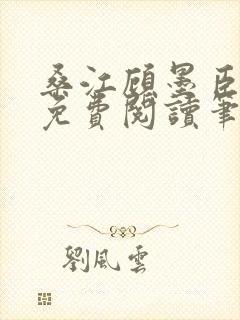 桑江顾墨臣
免費閱讀筆
劉風雲